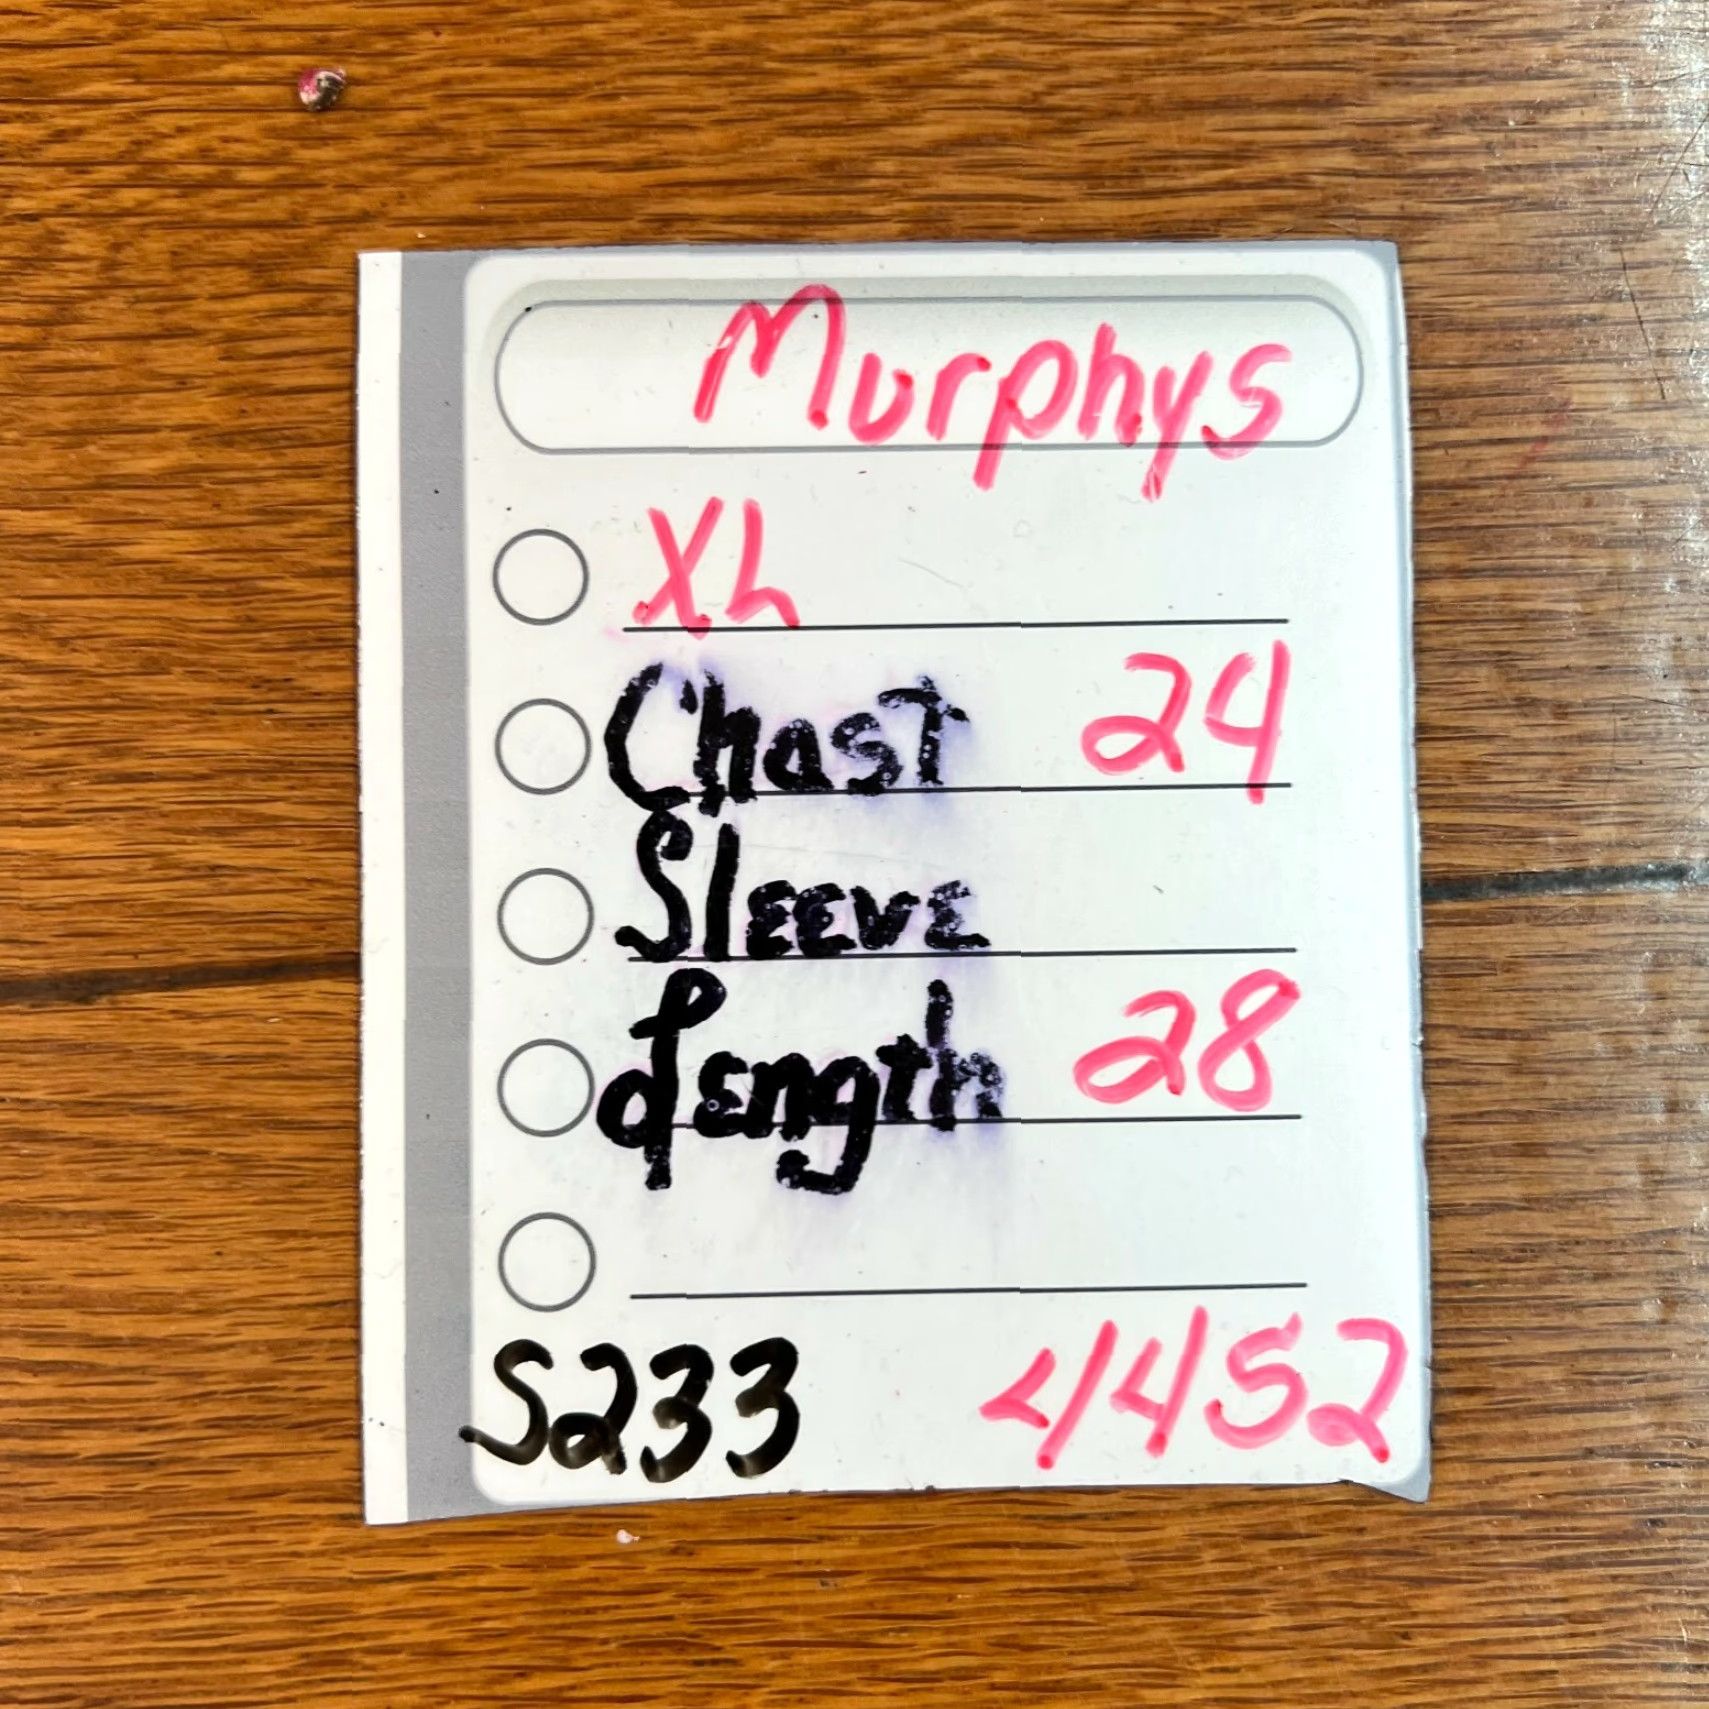 Murphys
XL
Chast 24
Sleeve
Length 28
S233 4452